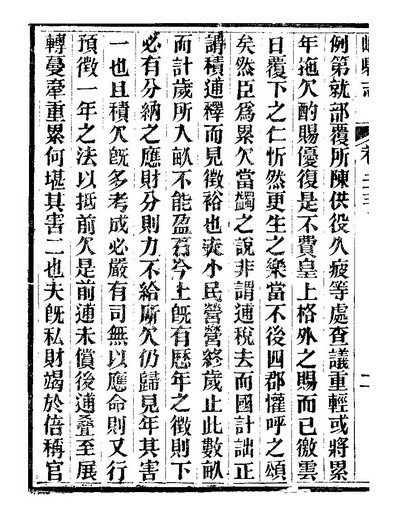 例第就部覆所陳供役久疲等處查議重輕或將累
年拖欠酌賜優復是不費皇上格外之賜而已徹雲
日覆下之仁忻然更生之樂當不後四郡懽呼之頌
矣然臣爲累欠當蠲之說非謂逋稅去而國計詘正
謂積逋釋而見徵裕也夫小民營營終歲止此數畝
而計歲所入畝不能盈石今上旣有歷年之徵則下
必有分納之應財分則力不給所欠仍歸見年其害
一也且積欠旣多考成必嚴有司無以應命則又行
預徵一年之法以抵前欠是前逋未償後逋疊至展
轉蔓牽重累何堪其害二也夫旣私財竭於倍稱官